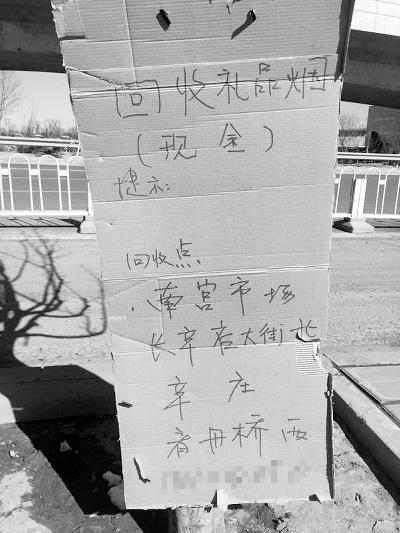 回收礼品烟
(现金)
提示:
回收点
南宫市场
长辛店大街北
辛庄
舟桥西